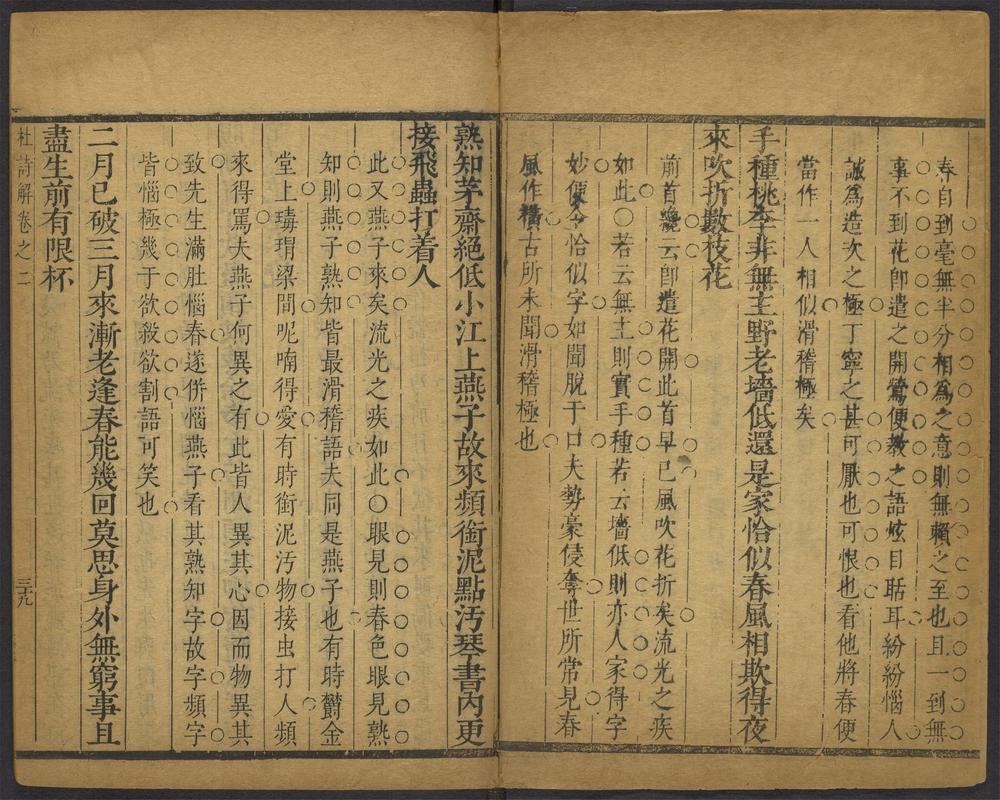 春自到毫無半分相為之意則無賴之至也且一到無
事不到花卽遣之開鶯便教之語炫目聒耳紛紛惱人
誠爲造次之極丁寧之甚可厭也可恨也看他將春便
當作一人相似滑稽極矣
手種桃李非無主野老墻低還是家恰似春風相欺得夜
來吹折數枝花
前首纔云卽遣花開此首早已風吹花折矣流光之疾
如此○若云無主則實手種若云墻低則亦人家得字
妙便令恰似字如聞脫于口夫勢豪侵奪世所常見春
風作橫古所未聞滑稽極也
熟知茅齋絕低小江上燕子故來頻銜泥點汚琴書內更
接飛蟲打着人
此又燕子來矣流光之疾如此○眼見則春色眼見熟
知則燕子熟知皆最滑稽語夫同是燕子也有時欝金
堂上瑇瑁梁間呢喃得愛有時銜泥汚物接虫打人頻
來得罵夫燕子何異之有此皆人異其心因而物異其
致先生滿肚惱春遂併惱燕子看其熟知字故字頻字
皆惱極幾于欲殺欲割語可笑也
二月已破三月來漸老逢春能幾回莫思身外無窮事且
盡生前有限杯
杜詩解卷之二
三十九